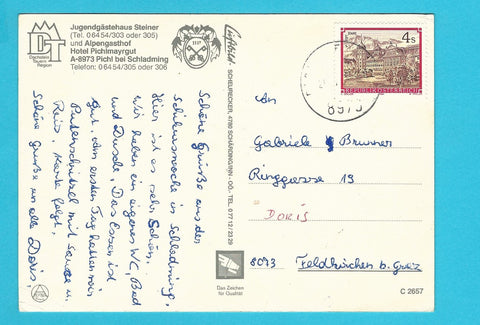 Jugendgästehaus Steiner
(Tel. 0 64 54/303 oder 305)
und Alpengasthof
Hotel Pichlmayrgut
A-8973 Pichl bei Schladming
Telefon: 0 64 54/305 oder 306
DT
Dachstein
Tauern
Region
Schöne Grüße aus der
Schikurswoche in Schladming.
Hier ist es sehr schön.
Wir haben ein eigenes WC, Bad
und Dusche. Das Essen ist
gut. Am ersten Tag hatten wir
Putenschnitzel mit Sauce u.
Reis. Karte folgt.
Schöne Grüße an alle Doris.
Luftbild
SCHEURECKER, 4780 SCHÄRDING/INN - OÖ. - TEL. 0 77 12/23 29
Das Zeichen
für Qualität
4 S
REPUBLIK ÖSTERREICH
8973
An
Gabriele Brunner
Ringgasse 13
DORIS
8073 Feldkirchen b. Graz
C 2657